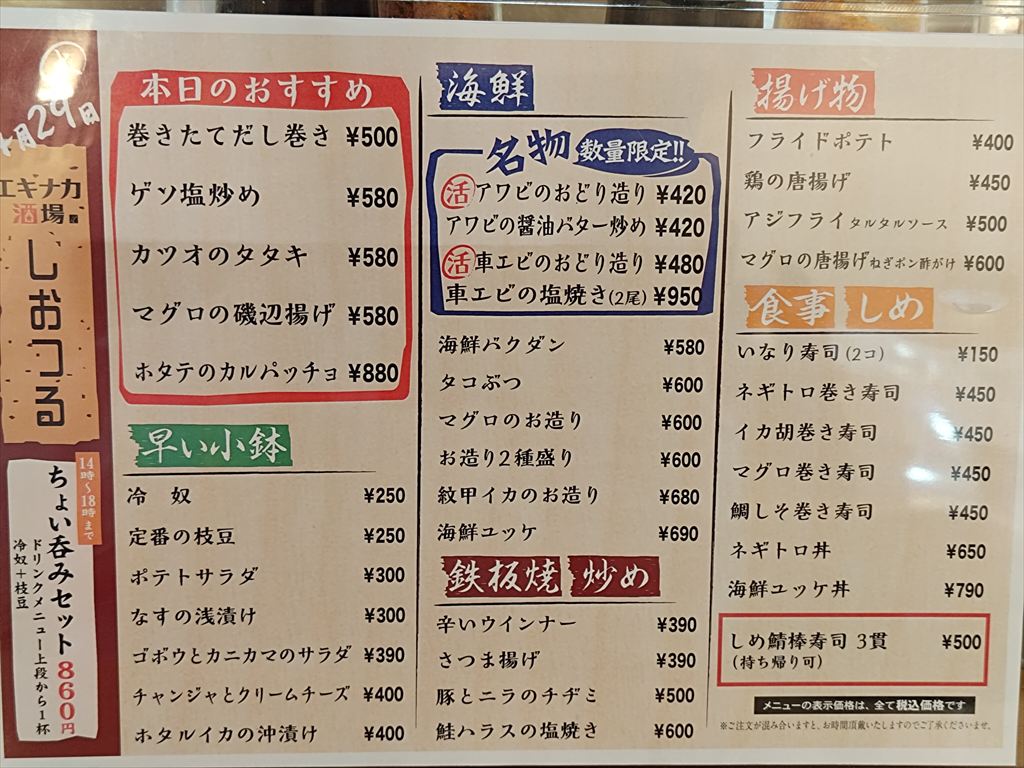 月29日
エキナカ
酒場
しおつる
14時〜18時まで
ちょい呑みセット 860円
ドリンクメニュー上段から1杯
冷奴+枝豆
本日のおすすめ
巻きたてだし巻き ¥500
ゲソ塩炒め ¥580
カツオのタタキ ¥580
マグロの磯辺揚げ ¥580
ホタテのカルパッチョ ¥880
早い小鉢
冷 奴 ¥250
定番の枝豆 ¥250
ポテトサラダ ¥300
なすの浅漬け ¥300
ゴボウとカニカマのサラダ ¥390
チャンジャとクリームチーズ ¥400
ホタルイカの沖漬け ¥400
海鮮
名物 数量限定!!
活 アワビのおどり造り ¥420
アワビの醤油バター炒め ¥420
活 車エビのおどり造り ¥480
車エビの塩焼き(2尾) ¥950
海鮮バクダン ¥580
タコぶつ ¥600
マグロのお造り ¥600
お造り2種盛り ¥600
紋甲イカのお造り ¥680
海鮮ユッケ ¥690
鉄板焼 炒め
辛いウインナー ¥390
さつま揚げ ¥390
豚とニラのチヂミ ¥500
鮭ハラスの塩焼き ¥600
揚げ物
フライドポテト ¥400
鶏の唐揚げ ¥450
アジフライ タルタルソース ¥500
マグロの唐揚げ ねぎポン酢がけ ¥600
食事 しめ
いなり寿司(2コ) ¥150
ネギトロ巻き寿司 ¥450
イカ胡巻き寿司 ¥450
マグロ巻き寿司 ¥450
鯛しそ巻き寿司 ¥450
ネギトロ丼 ¥650
海鮮ユッケ丼 ¥790
しめ鯖棒寿司 3貫 ¥500
(持ち帰り可)
メニューの表示価格は、全て税込価格です
※ご注文が混み合いますと、お時間頂戴いたしますのでご了承くださいませ。